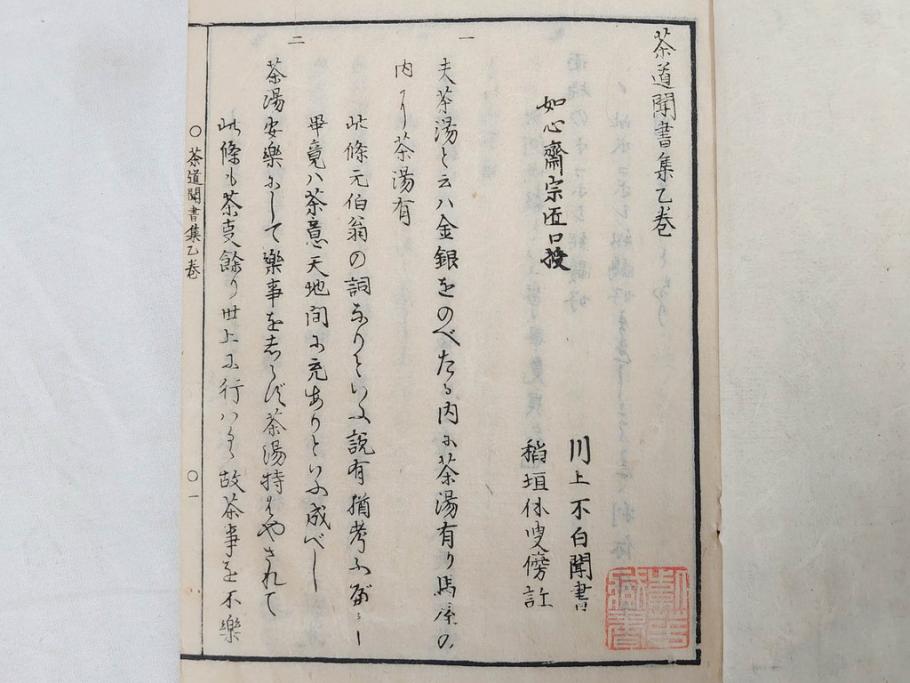 茶道聞書集乙巻
如心齋宗匠口授
川上不白聞書
稲垣休叟傍註
一
夫茶湯と云ハ金銀をのべたる内に茶湯有り馬屋の
内に茶湯有
此條元伯翁の詞なりといふ説有猶考ふべし
畢竟ハ茶意天地間に充ありといふ成べし
二
茶湯安樂にして樂事をしらず茶湯特もやされて
此條も茶事餘り世上に行ハるゝ故茶事を不樂
茶道聞書集乙巻
一